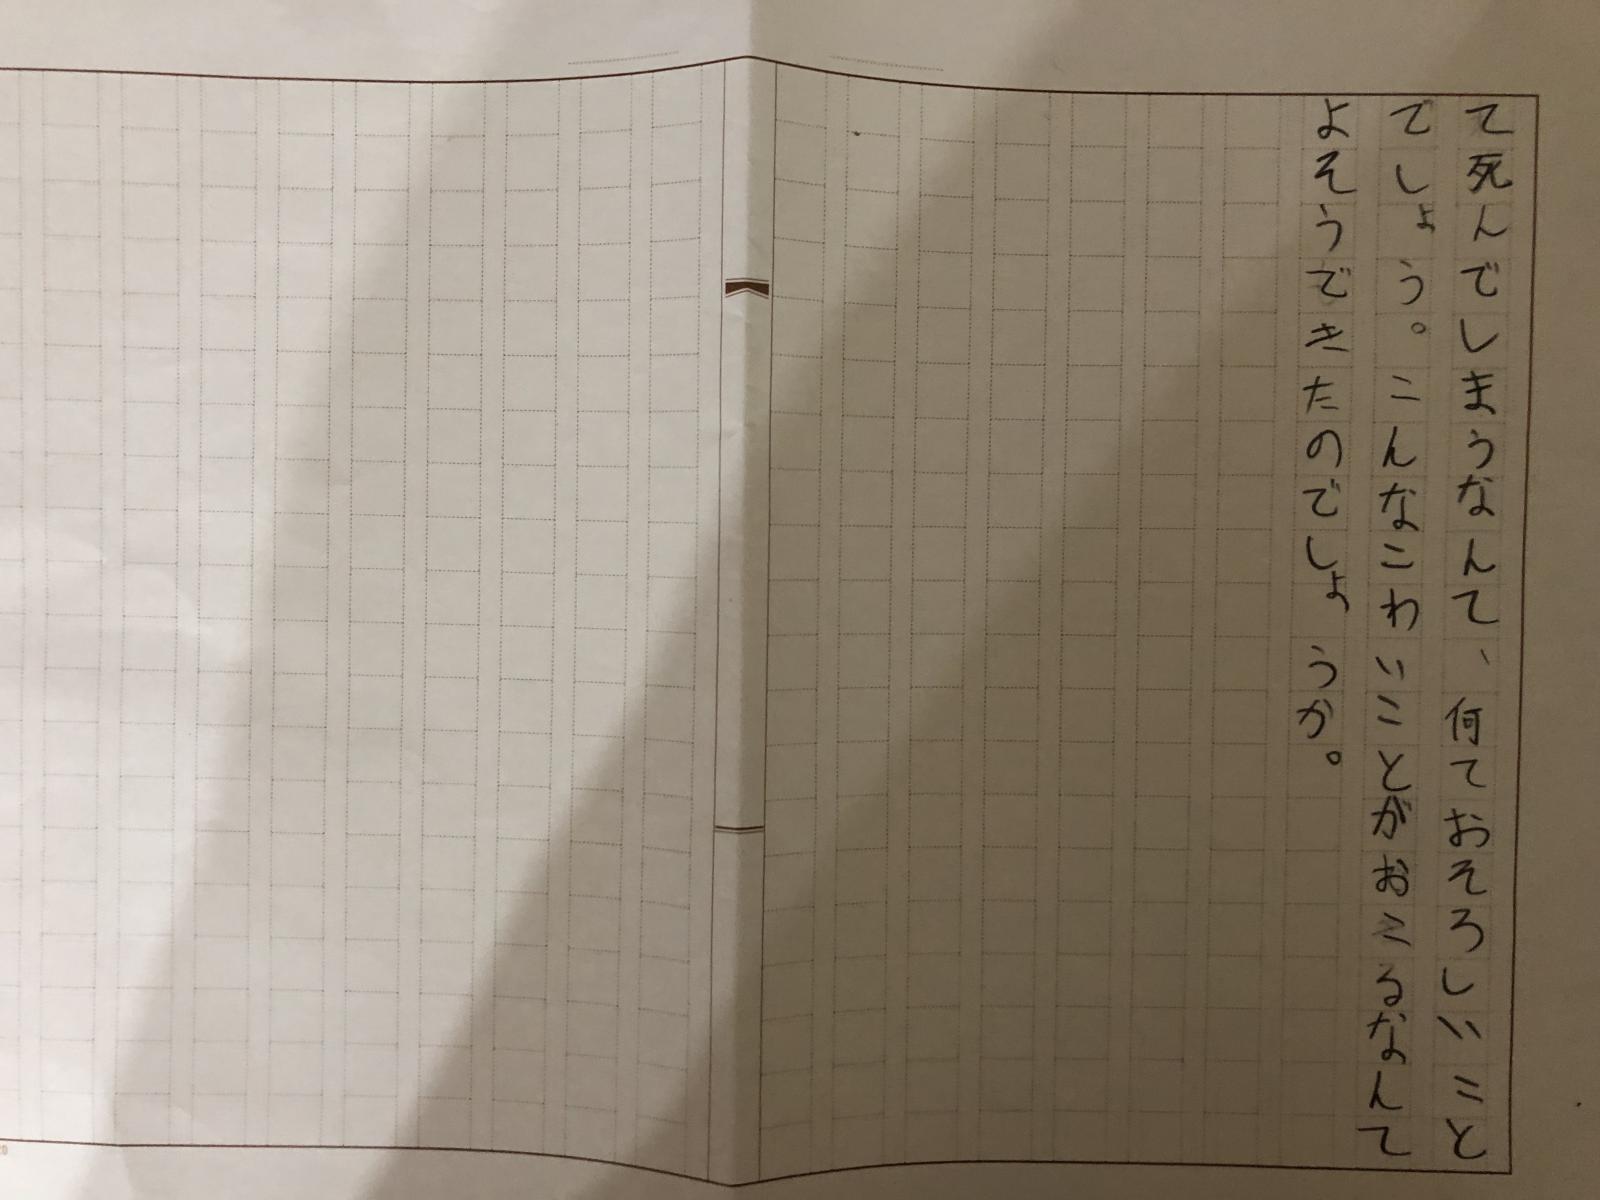 て死んでしまうなんて、何ておそろしいこと
でしょう。こんなこわいことがおこるなんて
よそうできたのでしょうか。
20